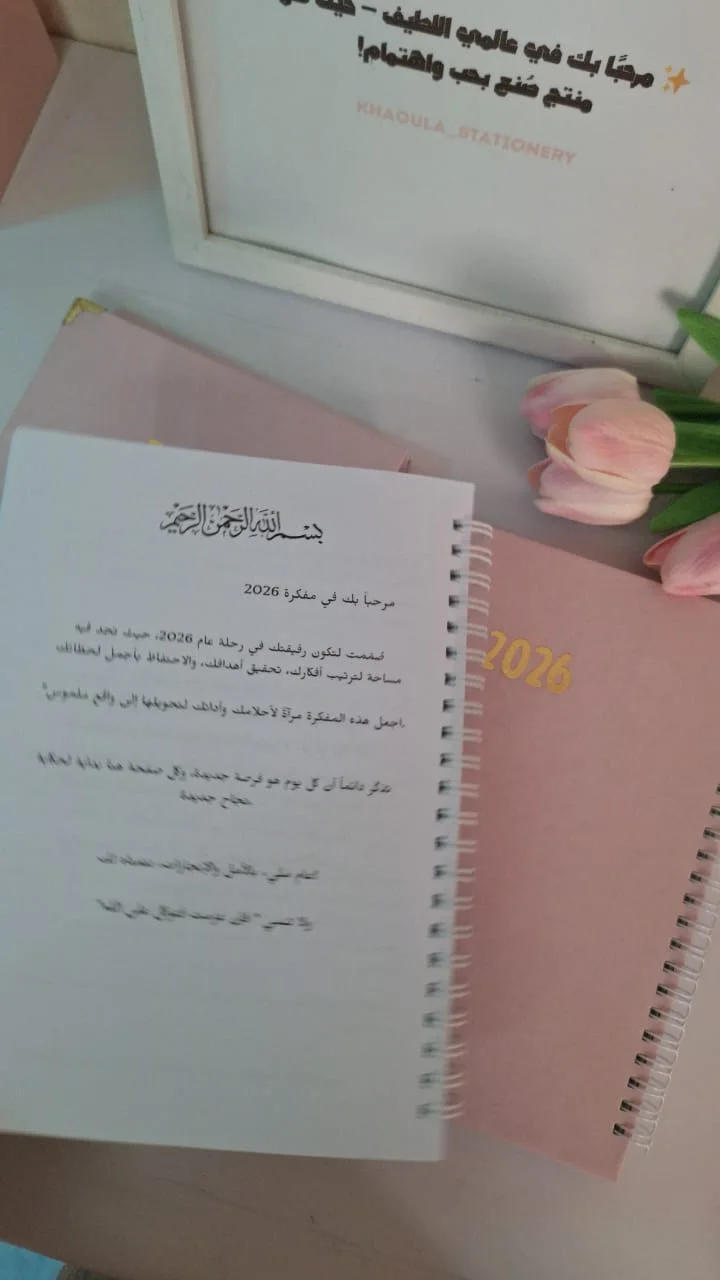 ✨ مرحبًا بك في عالمي اللطيف – حيث
منتج صُنع بحب واهتمام!
KHAOULA_STATIONERY
بسم الله الرحمن الرحيم
مرحباً بك في مفكرة 2026
صُممت لتكون رفيقتك في رحلة عام 2026، حيث تجد فيه
مساحة لترتيب أفكارك، تحقيق أهدافك، والاحتفاظ بأجمل لحظاتك
اجعل هذه المفكرة مرآةً لأحلامك وأداتك لتحويلها إلى واقع ملموس
تذكّر دائماً أن كل يوم هو فرصة جديدة، وكل صفحة هنا بداية لحكاية
نجاح جديدة
بالأمل والإنجازات
ولا تنسي
2026